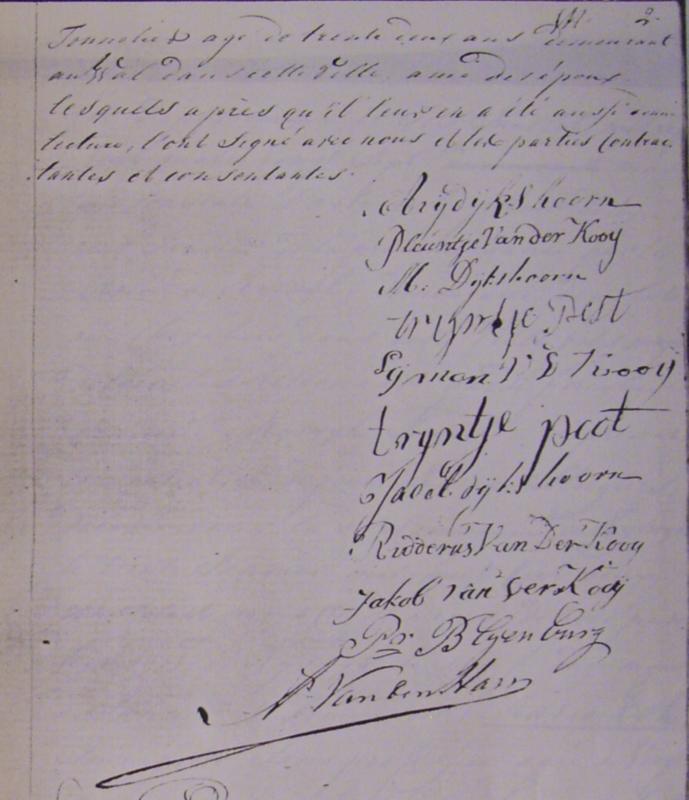 Tonnelier agé de trente deux ans demeurant
au Wal dans cette Ville, ami de l'époux
lesquels après qu'il leur en a été aussi donné
lecture, l'ont signé avec nous et les parties contrac-
tantes et consentantes.
Arij dijkshoorn
Pleuntje Van der Kooij
M. Dijkshoorn
trijntje Best
Sijmon V D Kooij
trijntje poot
Jacob dijkshoorn
Ridderus Van Der Kooij
Jakob van der Kooij
Pr. Blyenburg
A. Van den Ham